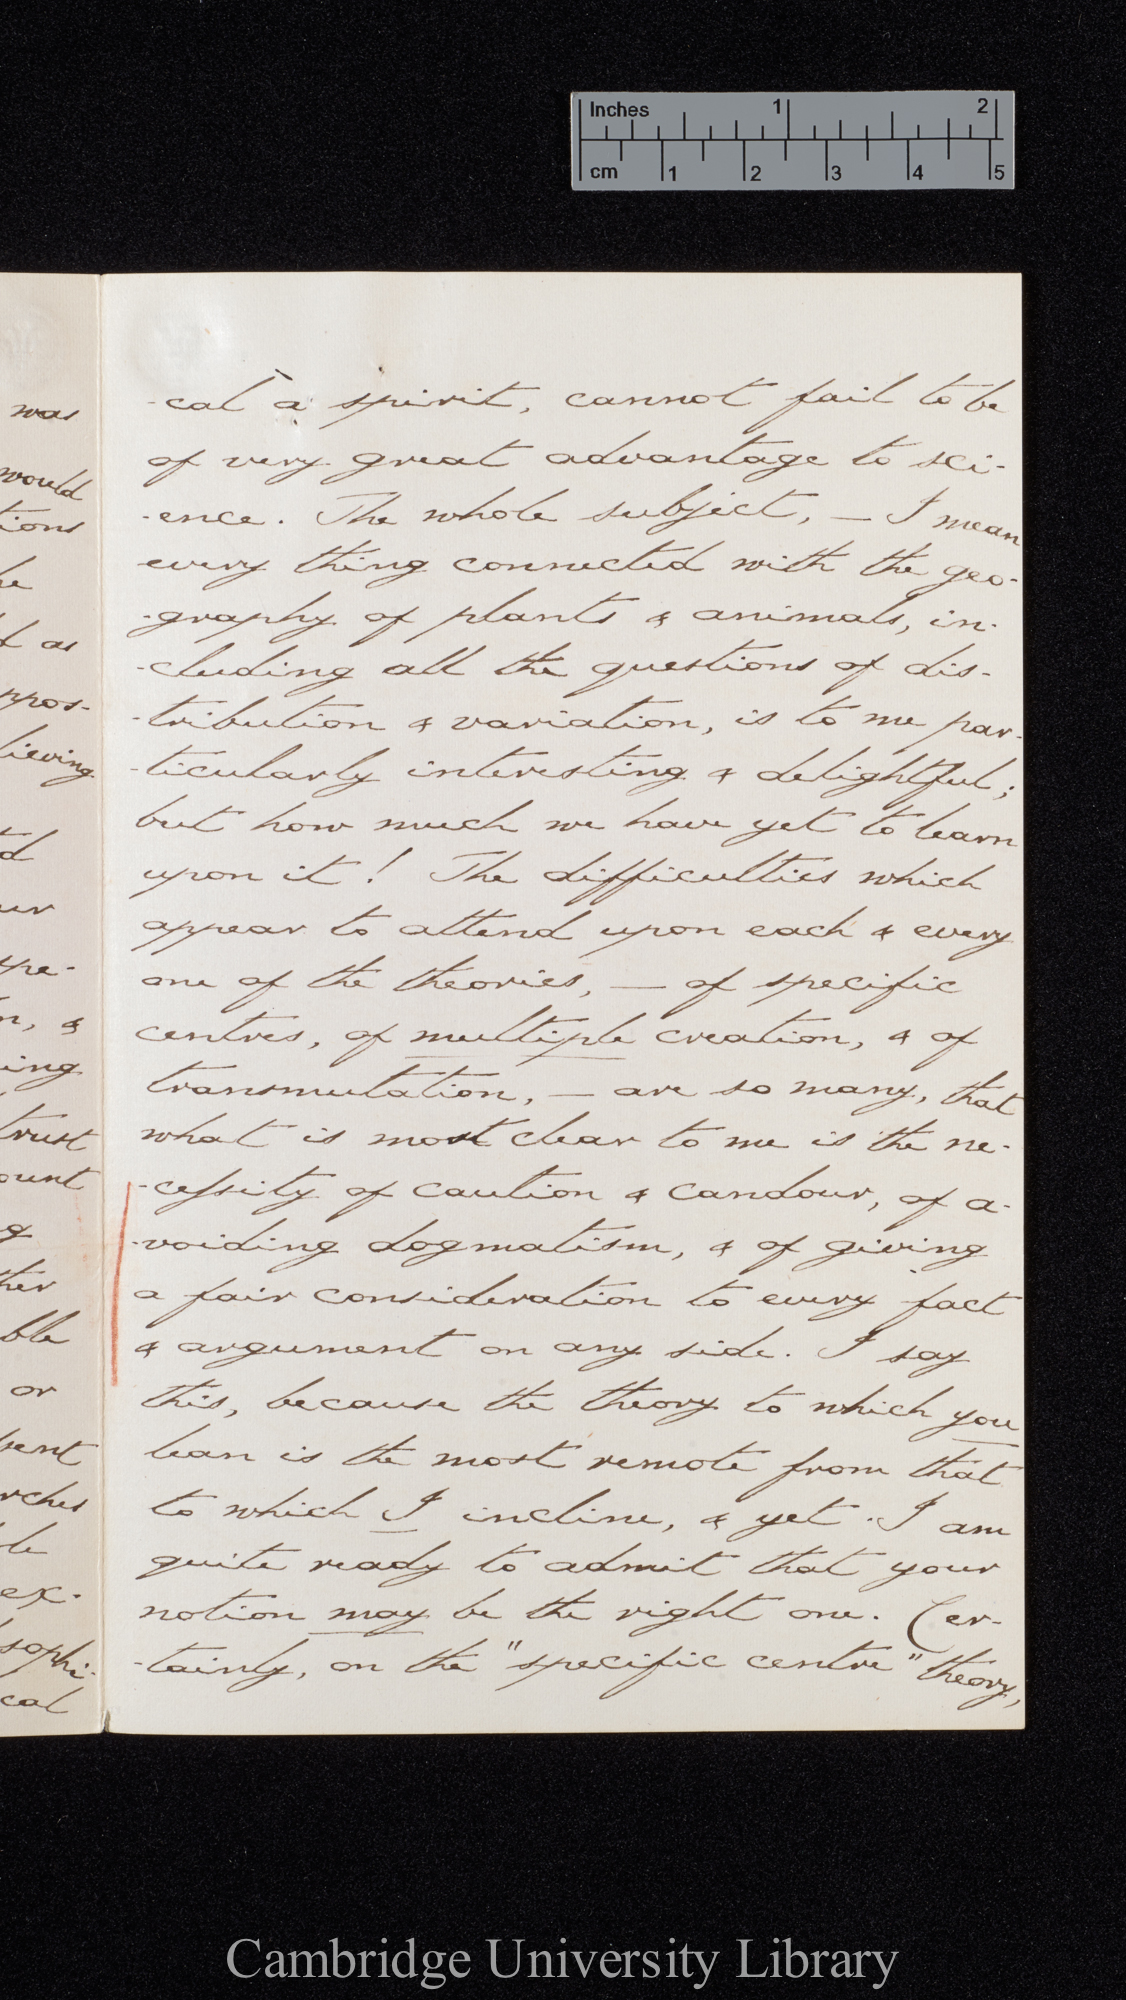 Inches 1 2
cm 1 2 3 4 5
was
would
tions
he
d as
ppos-
lieving
d
ur
spe-
n, &
ing
trust
ount
g
ther
ble
or
sent
rches
le
ex-
sophi-
cal
-cal a spirit, cannot fail to be
of very great advantage to sci-
-ence. The whole subject, — I mean
every thing connected with the geo-
-graphy of plants & animals, in-
-cluding all the questions of dis-
-tribution & variation, is to me par-
-ticularly interesting & delightful;
but how much we have yet to learn
upon it! The difficulties which
appear to attend upon each & every
one of the theories, — of specific
centres, of multiple creation, & of
transmutation, — are so many, that
what is most clear to me is the ne-
-cessity of caution & candour, of a-
-voiding dogmatism, & of giving
a fair consideration to every fact
& argument on any side. I say
this, because the theory to which you
lean is the most remote from that
to which I incline, & yet I am
quite ready to admit that your
notion may be the right one. Cer-
-tainly, on the "specific centre" theory,
Cambridge University Library